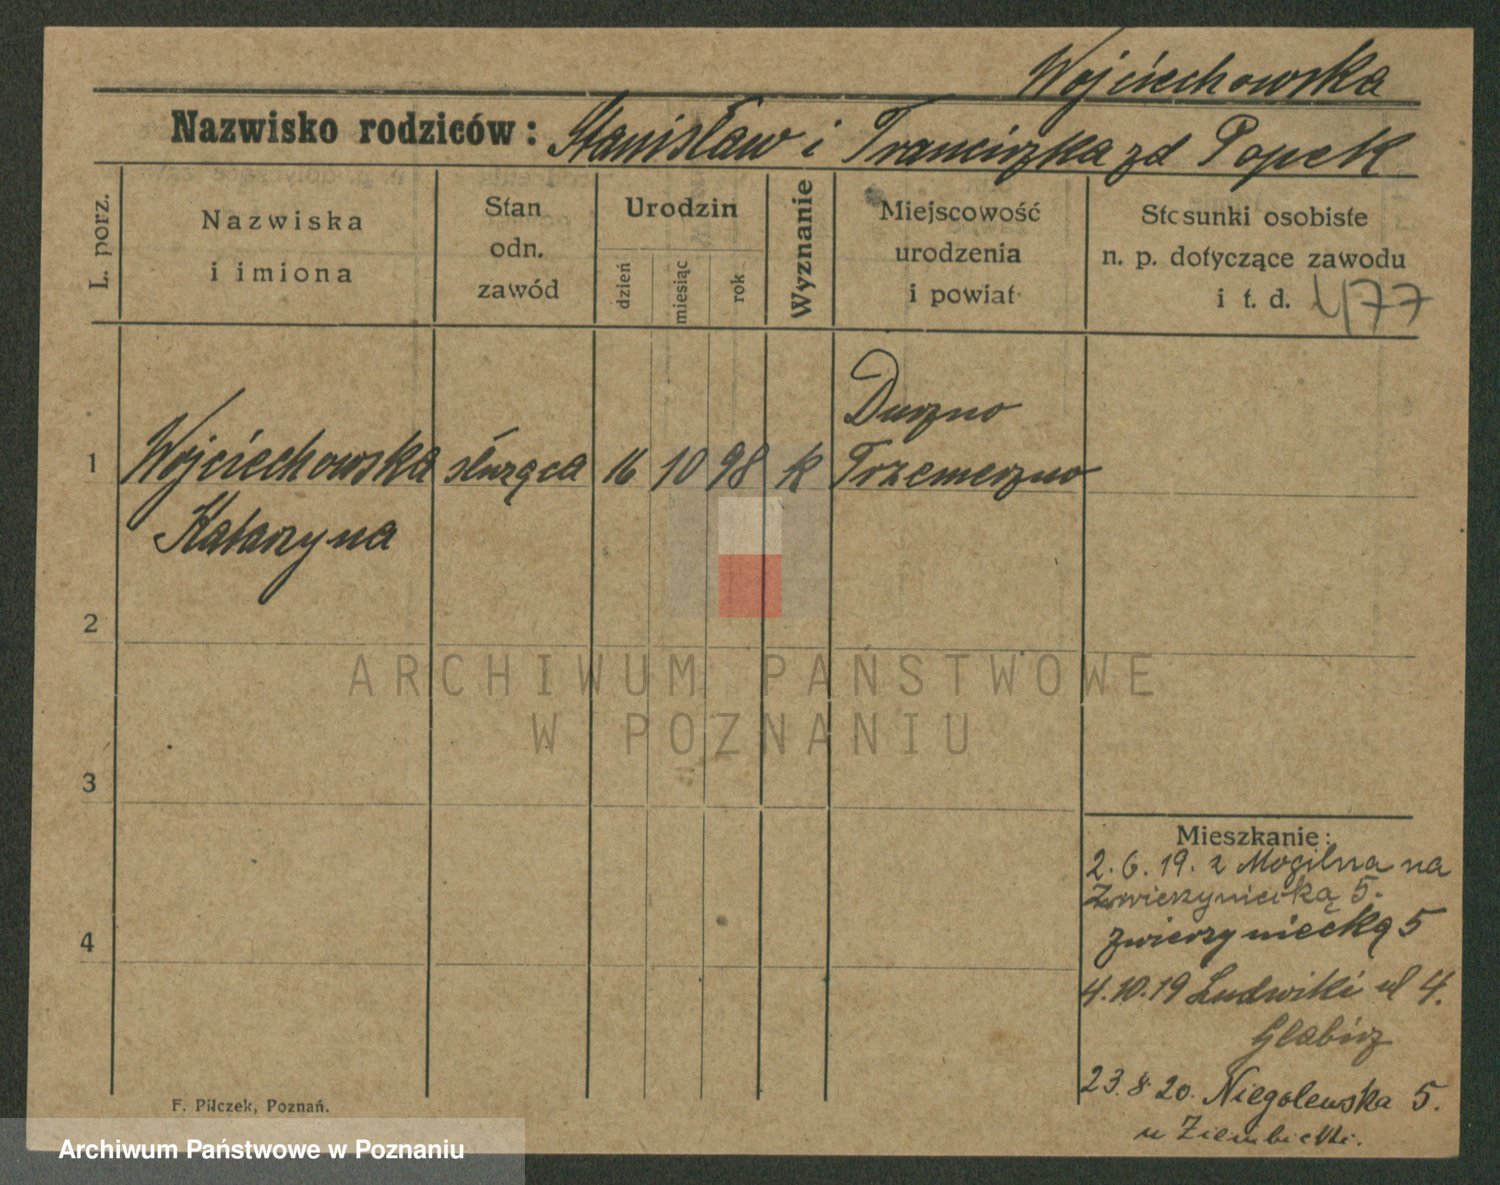 Wojciechowska
Nazwisko rodziców: Stanisław i Franciszka zd Popek
L. porz.
Nazwiska
i imiona
Stan
odn.
zawód
Urodzin
dzień
miesiąc
rok
Wyznanie
Miejscowość
urodzenia
i powiat
Stosunki osobiste
n. p. dotyczące zawodu
i t. d. 477
Duszno
1 Wojciechowska służąca 16 10 98 k Trzemeszno
Katarzyna
2
ARCHIWUM PAŃSTWOWE
W POZNANIU
3
Mieszkanie:
2.6.19. z Mogilna na
Zwierzyniecką 5.
4 zwierzyniecką 5
4.10.19 Ludwiki ul 4.
23.8.20. Niegolewska 5.
F. Pilczek, Poznań.
Archiwum Państwowe w Poznaniu